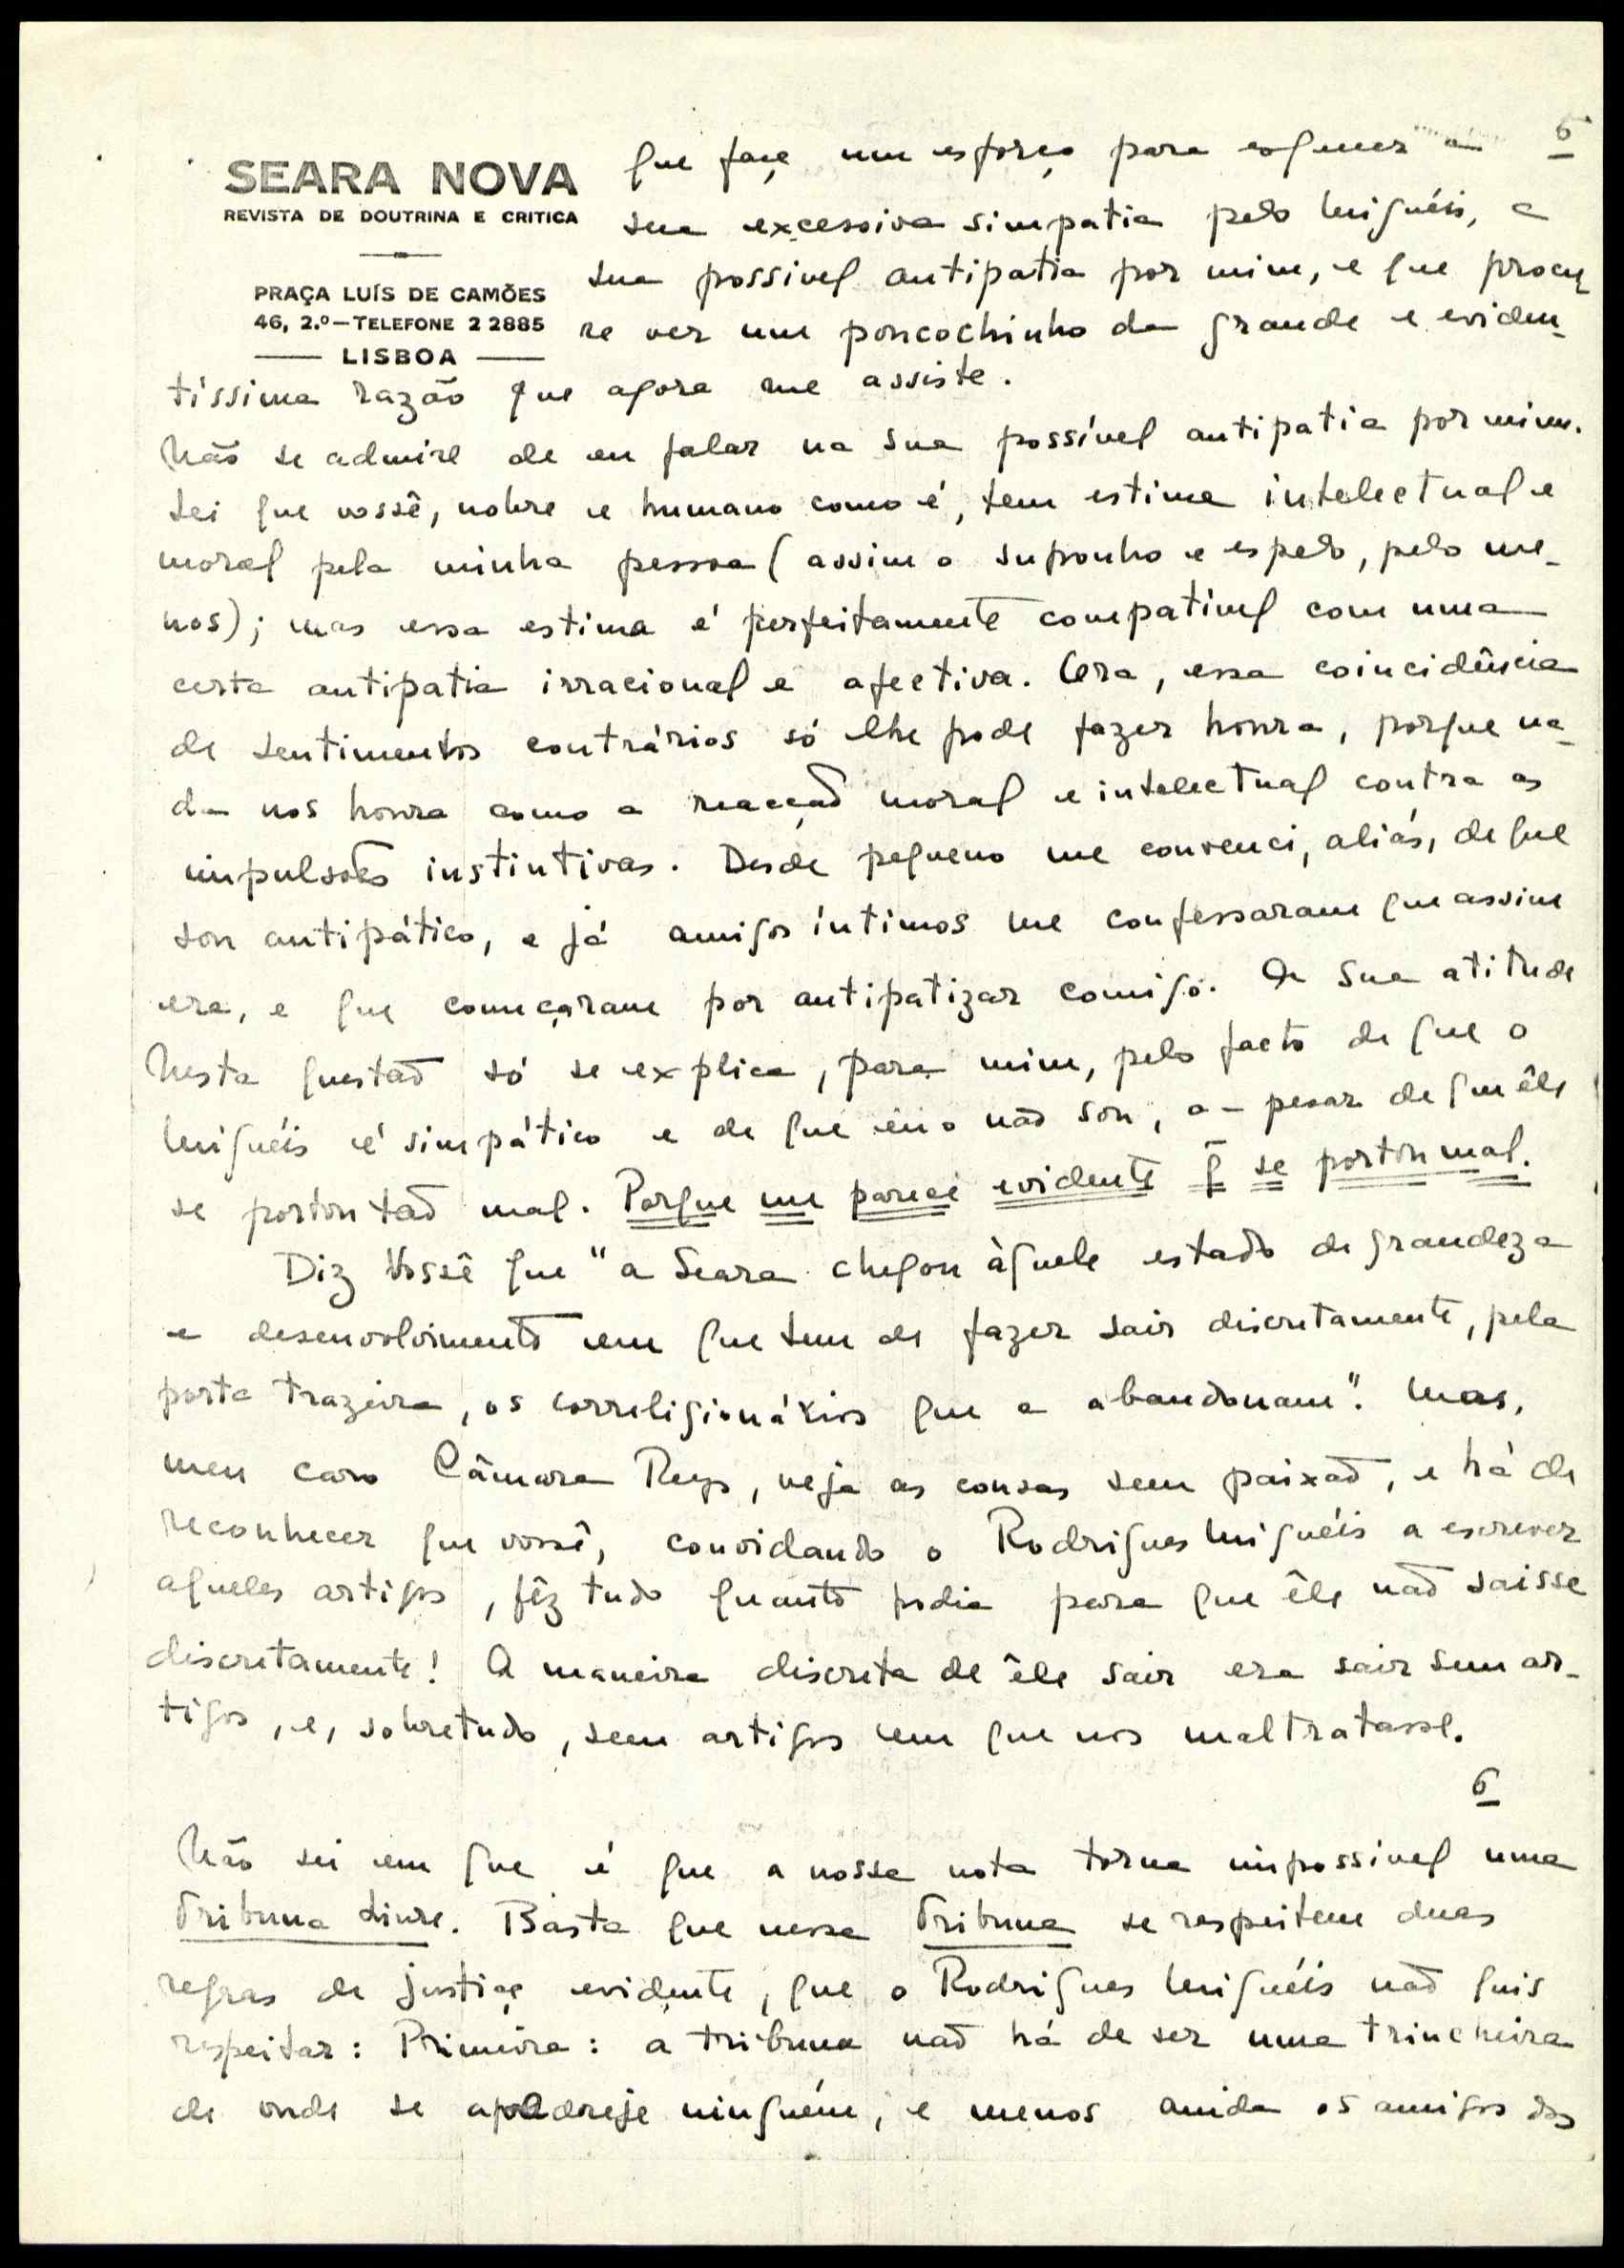 SEARA NOVA
REVISTA DE DOUTRINA E CRITICA
PRAÇA LUÍS DE CAMÕES
46, 2.º—TELEFONE 2 2885
LISBOA
6
que faça um esforço para esquecer a
sua excessiva simpatia pelo Miguéis, e
sua possivel antipatia por mim, e que procu
re ver um poucochinho da grande e eviden-
tíssima razão que agora me assiste.
Não se admire de eu falar na sua possível antipatia por mim.
Sei que vossê, nobre e humano como é, tem estima intelectual e
moral pela minha pessoa (assim o suponho e espero, pelo me-
nos); mas essa estima é perfeitamente compativel com uma
certa antipatia irracional e afectiva. Ora, essa coincidência
de sentimentos contrários só lhe pode fazer honra, porque na-
da nos honra como a reacção moral e intelectual contra as
impulsões instintivas. Desde pequeno me convenci, aliás, de que
sou antipático, e já amigos íntimos me confessaram que assim
era, e que começaram por antipatizar comigo. A sua atitude
nesta questão só se explica, para mim, pelo facto de que o
Miguéis é simpático e de que eu o não sou, a-pesar de que êle
se portou tão mal. Porque me parece evidente q̃ se portou mal.
Diz Vossê que "a Seara chegou àquele estado de grandeza
e desenvolvimento em que tem de fazer sair discretamente, pela
porta trazeira, os correligionários que a abandonam". Mas,
meu caro Câmara Reys, veja as cousas sem paixão, e há de
reconhecer que vossê, convidando o Rodrigues Miguéis a escrever
aqueles artigos, fêz tudo quanto podia para que êle não saisse
discretamente! A maneira discreta de êle sair era sair sem ar-
tigos, e, sobretudo, sem artigos em que nos maltratasse.
6
Não sei em que é que a nossa nota torna impossivel uma
Tribuna Livre. Basta que nessa Tribuna se respeitem duas
regras de justiça evidente, que o Rodrigues Miguéis não quis
respeitar: Primeira: a tribuna não há de ser uma trincheira
de onde se apedreje ninguém, e menos ainda os amigos dos